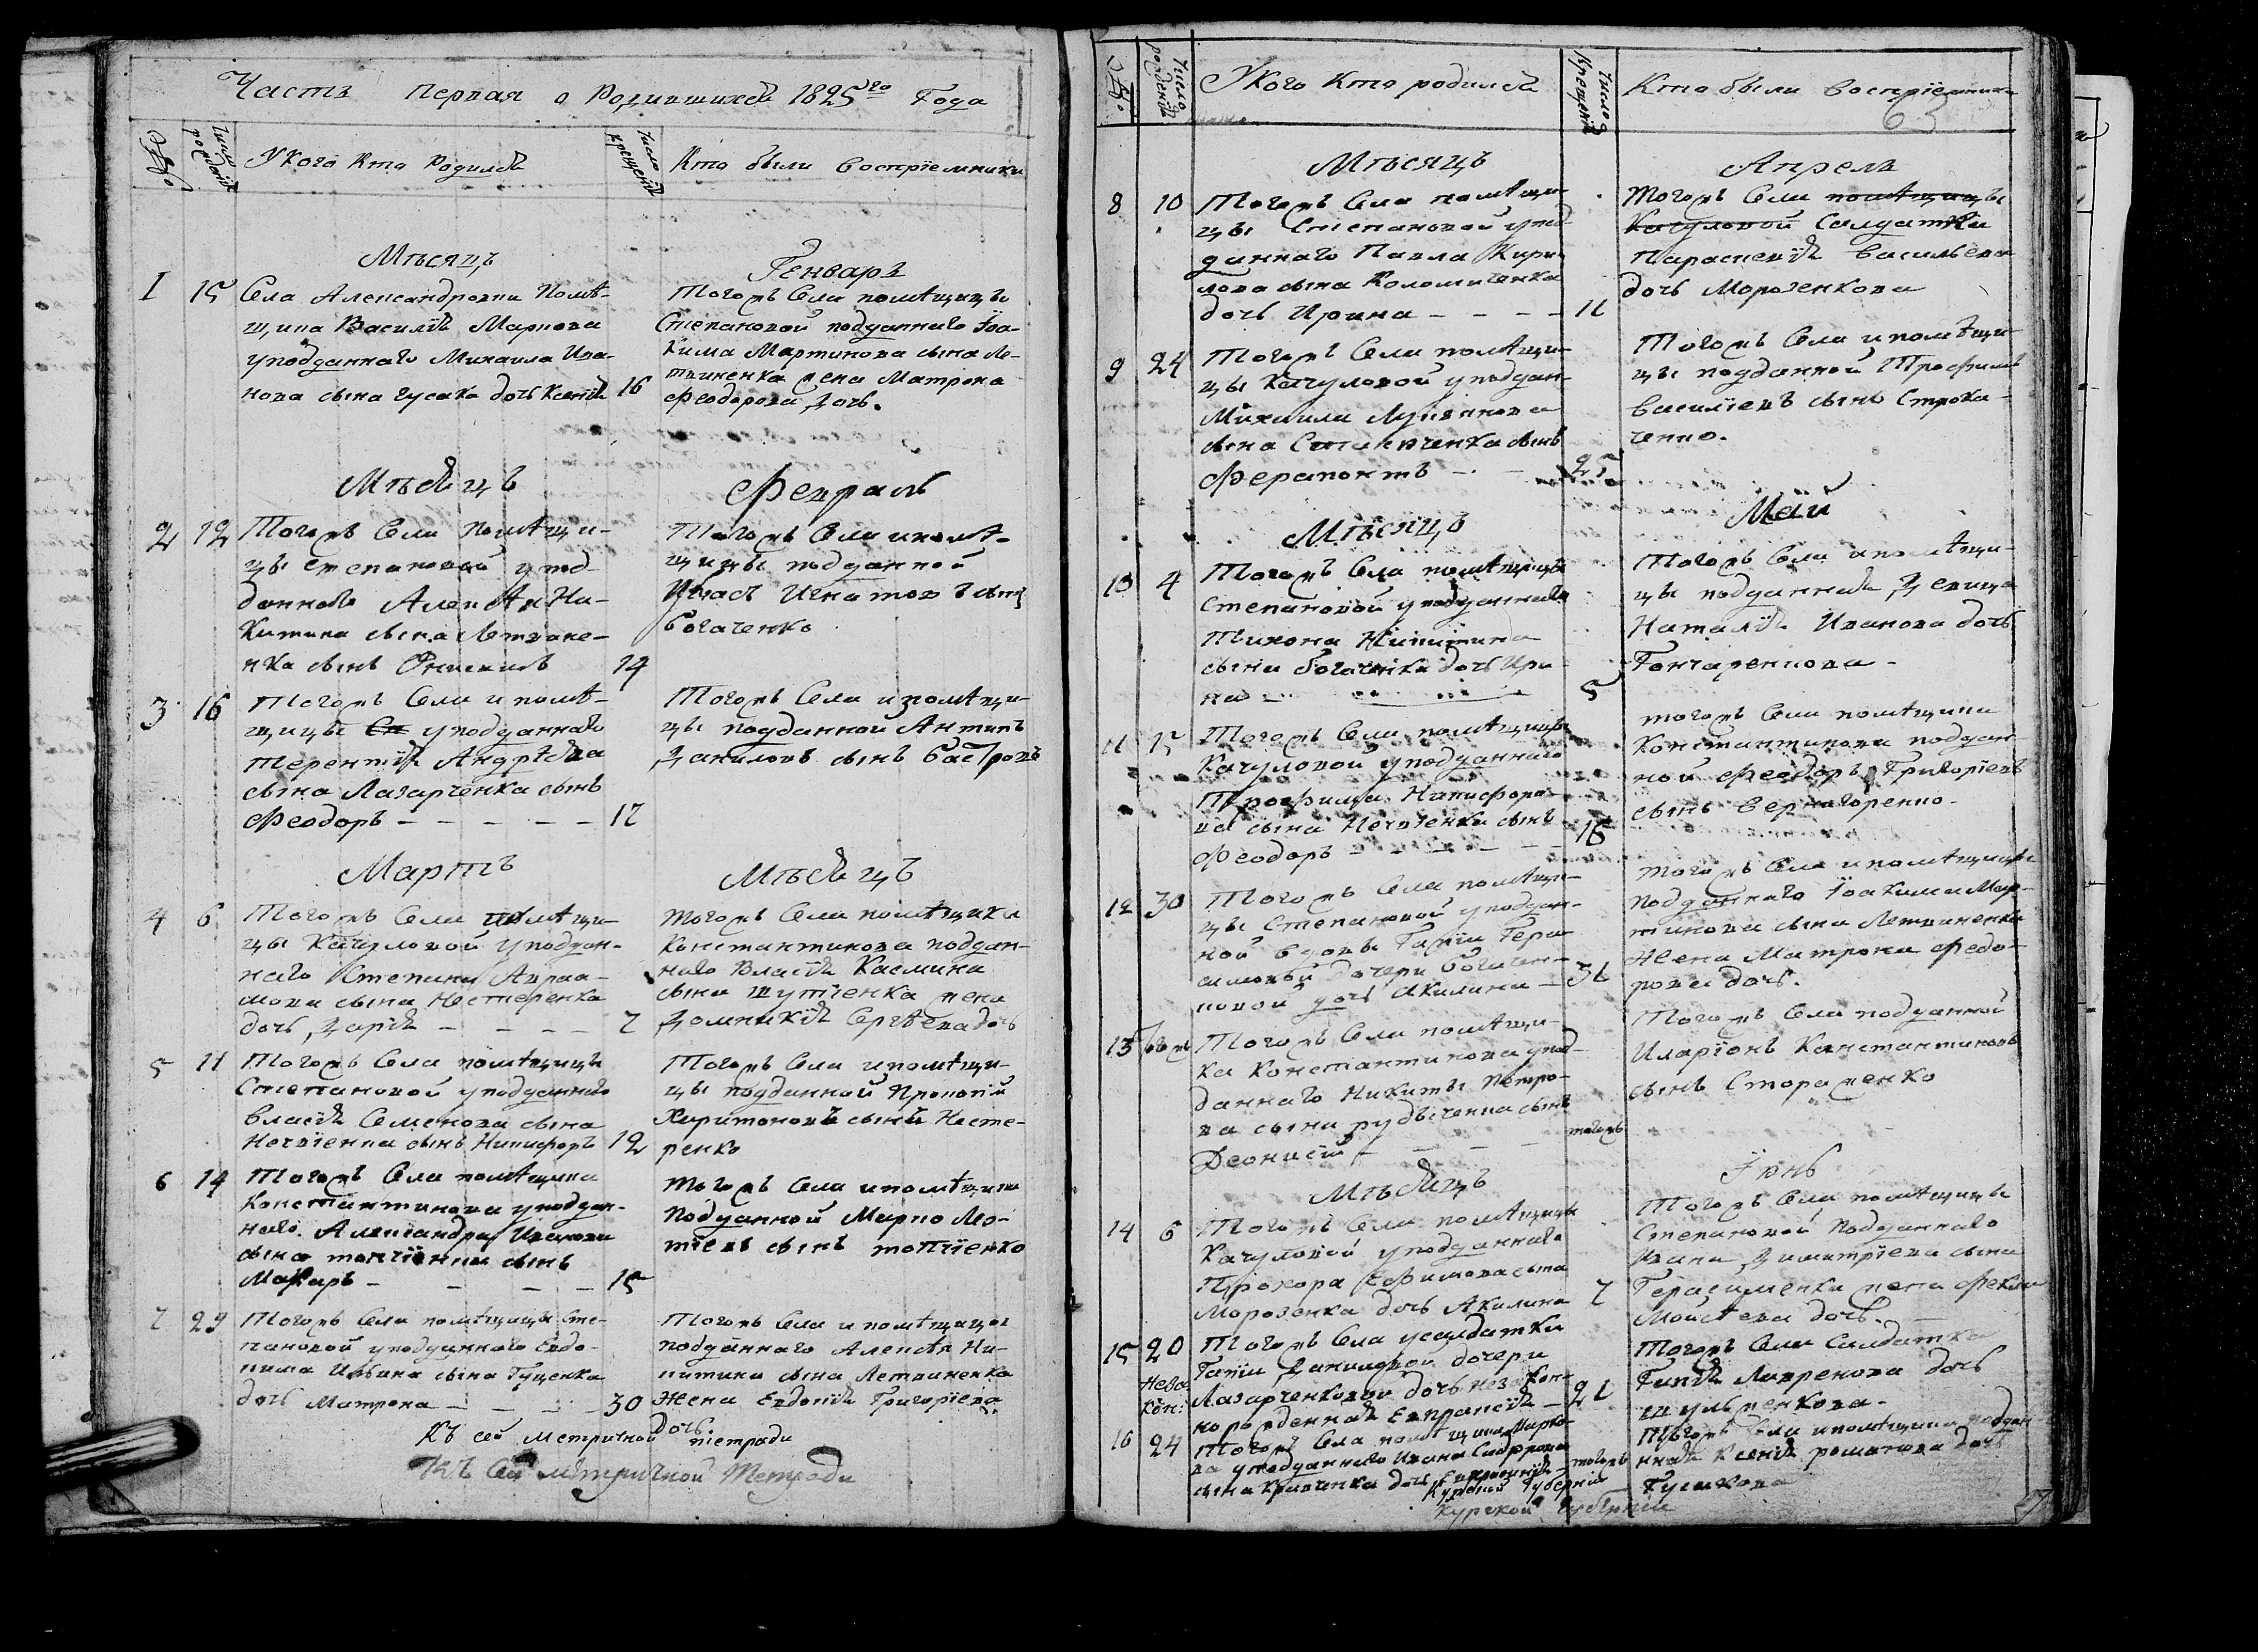 Часть первая о Родившихся 1825го Года
№
Число рожденія
У Кого Кто Родился
Число крещенія
Кто были воспріемники
Мѣсяцъ
Генварь
1 15 Села Александровки Помѣ-
щика Василія Маркова
у подданнаго Михаила Ива-
нова сына гусака дочь Ксенія 16
Тогожъ Села помѣщицы
Степановой подданнаго Іоа-
кима Мартинова сына Ле-
твиненка жена Матрона
Феодорова дочь.
Мѣсяцъ
Февраль
2 12 Тогожъ Села Помѣщи-
цы Степановой у под-
даннаго Алексѣя Ни-
китина сына Летвине-
нка сынъ Онисимъ 14
Тогожъ Села и помѣ-
щицы подданной
Игнатовъ сынъ
богаченко
3 16 Тогожъ Села и помѣ-
щицы у подданнаго
терентія Андрѣева
сына Лазарченка сынъ
Феодоръ - - - - - 17
Тогожъ Села и помѣщи-
цы подданной Антипъ
Даниловъ сынъ
Мартъ
Мѣсяцъ
4 6 Тогожъ Села помѣщи-
цы Качуловой у поддан-
наго Степана Авраа-
мова сына Нестеренка
дочь Дарія - - - - 7
Тогожъ Села помѣщика
Константинова поддан-
наго Власія Касмина
сына шутіенка жена
Домникія Сергѣева дочь
5 11 Тогожъ Села помѣщицы
Степановой у подданнаго
Власія Семенова сына
Нечвіенка сынъ Никифоръ 12
Тогожъ Села и помѣщи-
цы подданной Прокопій
Харитоновъ сынъ Несте-
ренко
6 14 Тогожъ Села помѣщика
Константинова у поддан-
наго Александра Иванова
сына топчіенка сынъ
Макаръ - - - - 15
Тогожъ Села и помѣщика
Подданной Марко Ма-
тіевъ сынъ топчіенко
7 29 Тогожъ Села помѣщицы Сте-
пановой у подданнаго Евдо-
кима Ильина сына Гуценка
дочь Матрона - - - - 30
Тогожъ Села и помѣщицы
подданнаго Алексѣя Ни-
китина сына Летвиненка
Жена Евдокія Григоріева
дочь.
Къ сей метричной тетради
Къ Сей метричной Тетради
№
Число рожденія
У Кого Кто родился
Число Крещенія
Кто были воспріемники
63
Мѣсяцъ
Апрель
8 10 Тогожъ Села помѣщи-
цы Степановой у под-
даннаго Павла Кири-
лова сына Коломиченка
дочь Ирина - - - - 11
Тогожъ Села помѣщицы
Качуловой Салдатки
Параскевія Васильева
дочь Морозенкова
9 24 Тогожъ Села помѣщи-
цы Качуловой у поддан-
Михаила Лукіянова
сына сынъ
Ферапонтъ - - 25
Тогожъ Села и помѣщи-
цы подданной Трофимъ
Василіевъ сынъ Строка-
ченко.
Мѣсяцъ
Май
10 4 Тогожъ Села помѣщицы
Степановой у подданнаго
Тихона Никитина
сына богаченка дочь Ири-
на - - - 5
Тогожъ Села и помѣщи-
цы подданная Девица
Наталія Иванова дочь
Гончаренкова -
11 15 Тогожъ Села помѣщицы
Качуловой у подданнаго
Трофима Никифоро-
ва сына Нечвіенка сынъ
Феодоръ - - - - - 16
тогожъ Села помѣщика
Константинова поддан-
ной Феодоръ Григоріевъ
сынъ Верногоренко -
12 30 Тогожъ Села помѣщи-
цы Степановой у поддан-
ной вдовы Гапіи Гера-
симовой дочери богачен-
ковой дочь Акилина - 31
тогожъ Села и помѣщицы
подданнаго Іоакима Мар-
тинова сына Летвиненка
Жена Матрона Федо-
рова дочь.
13 Тогожъ Села помѣщи-
ка Константинова у под-
даннаго Никиты Петро-
ва сына рудѣченка сынъ
Деонисій - - - тогожъ
Тогожъ Села подданной
Иларіонъ Константиновъ
сынъ Стороженко
Мѣсяцъ
Іюнь
14 6 Тогожъ Села помѣщицы
Качуловой у подданнаго
Прохора Ефимова сына
Морозенка дочь Акилина 7
Тогожъ Села помѣщицы
Степановой Подданнаго
Ивана Димитріева сына
Герасименка жена Фекла
Моисѣева дочь.
15 20 Тогожъ Села у салдатки
Гапіи Даниловой дочери
Незакон: Лазарченковой дочь незакон-
норожденная Евпраксія - 21
Тогожъ Села Салдатка
Гапія Лавренова дочь
шульженкова -
16 24 Тогожъ Села помѣщика Марко-
ва у подданнаго Ивана Сафронова
сына Кравченка дочь тогожъ
Тогожъ Села и помѣщика поддан-
ная Ксенія романова дочь
Гусакова
Курской Губерніи
Курской Губерніи